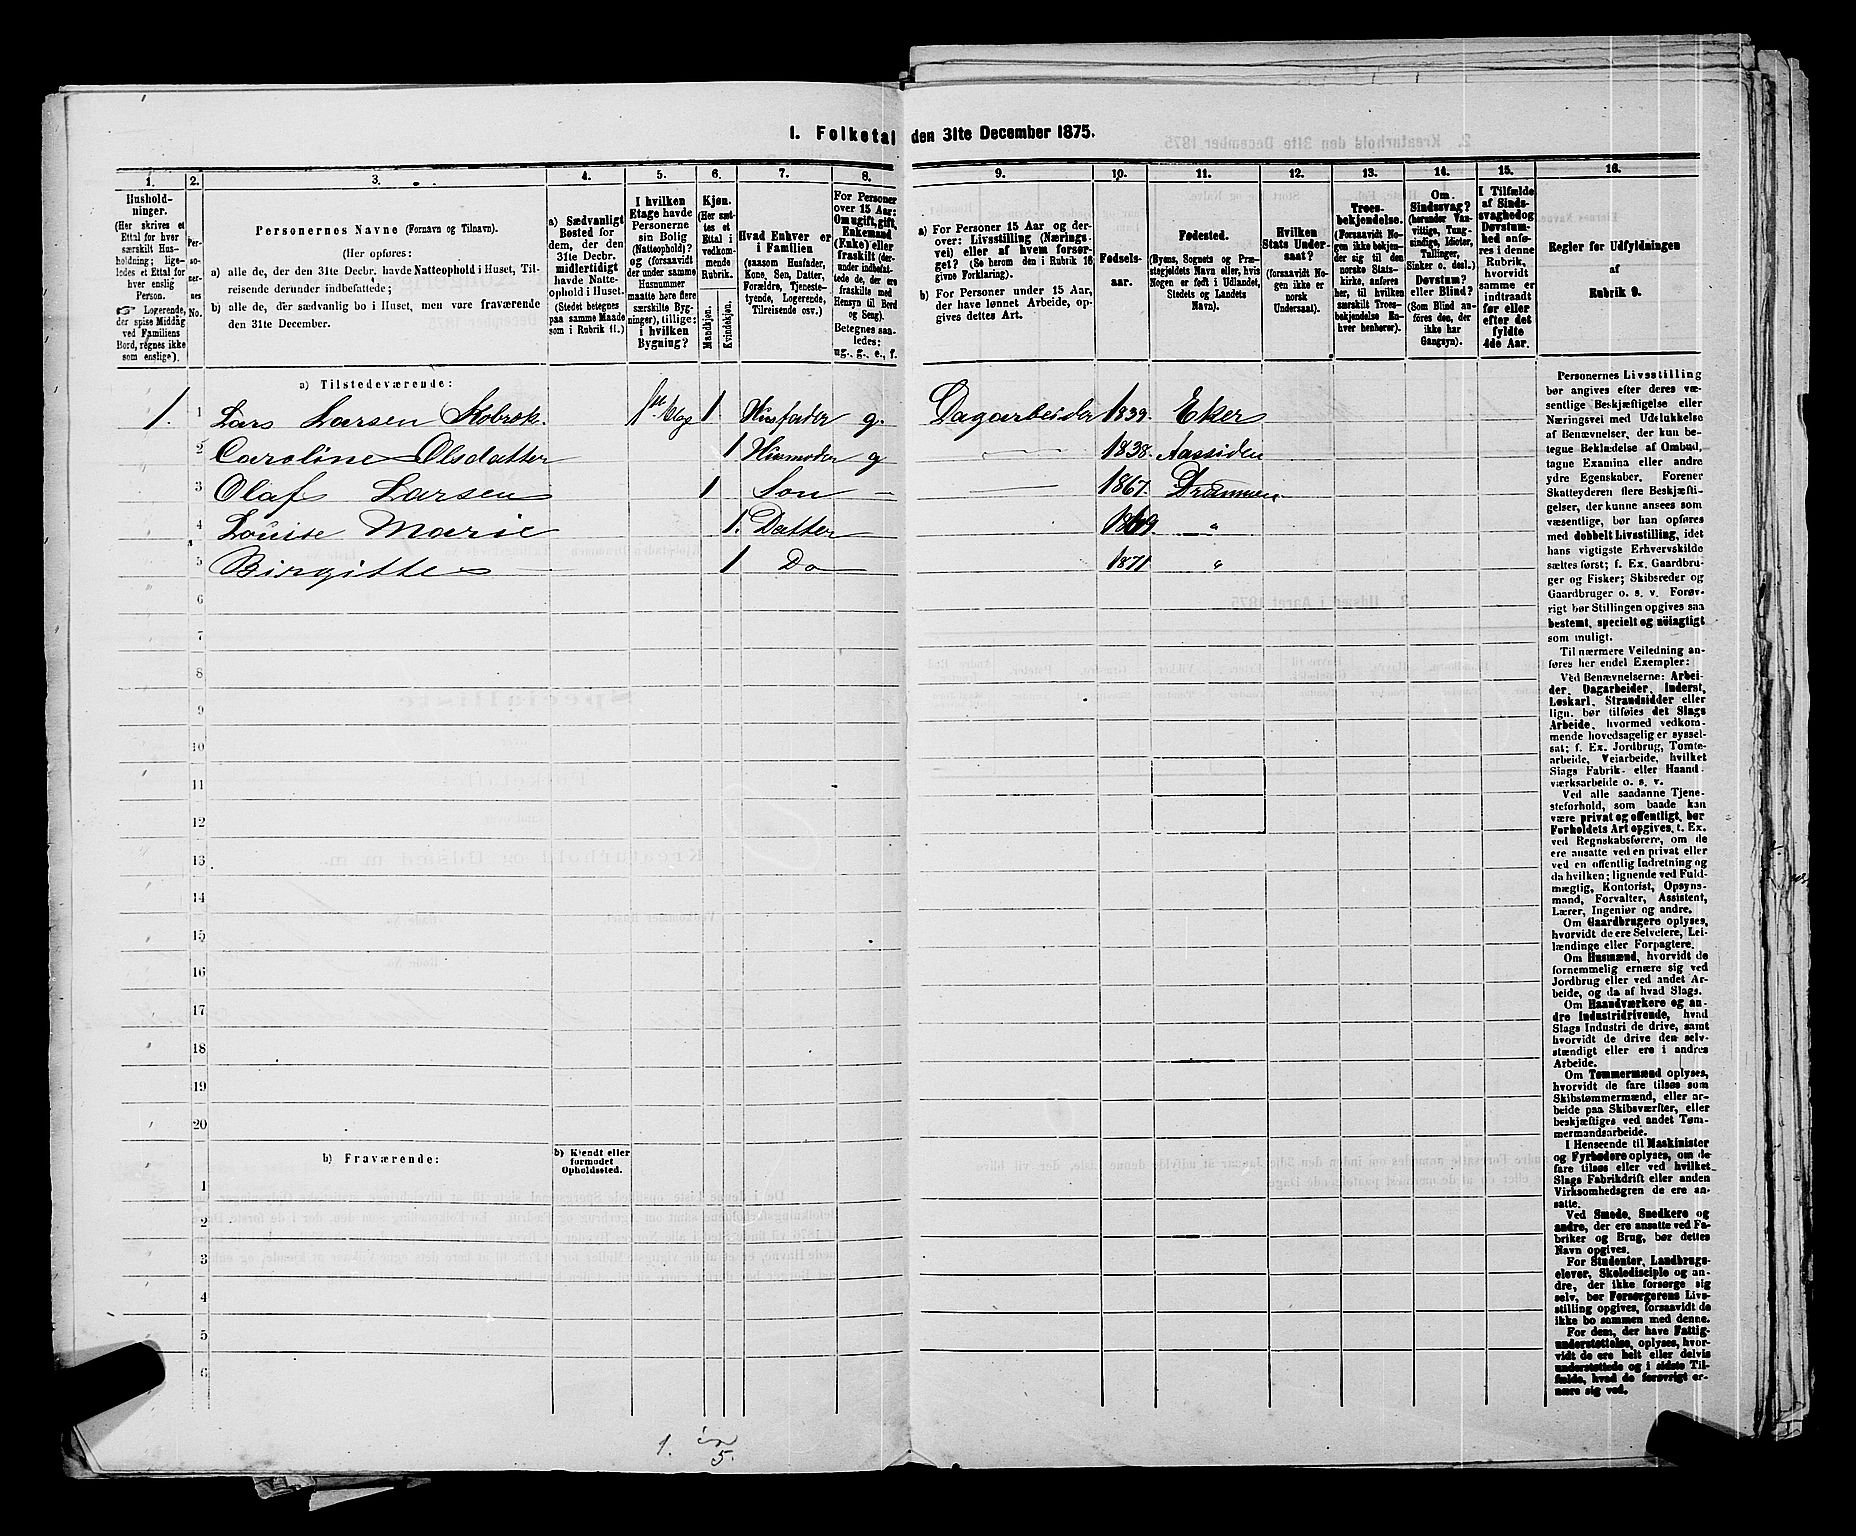 1. Folketal den 31te December 1875.
1.
2.
3.
4.
5.
6.
7.
8.
9.
10.
11.
12.
13.
14.
15.
16.
Hushold-
ninger.
(Her skrives et
Ettal for hver
særskilt Hus-
holdning; lige-
ledes et Ettal for
hver enslig
Person.
☞ Logerende,
der spise Middag
ved Familiens
Bord, regnes ikke
som enslige).
Per-
so-
ner-
nes
No.
Personernes Navne (Fornavn og Tilnavn).
(Her opføres:
a) alle de, der den 31te Decbr. havde Natteophold i Huset, Til-
reisende derunder indbefattede;
b) alle de, der sædvanlig bo i Huset, men vare fraværende
den 31te December.
a) Sædvanligt
Bosted for
dem, der den
31te Decbr.
midlertidigt
havde Natte-
ophold i Huset.
(Stedet betegnes
paa samme Maade
som i Rubrik 11.)
I hvilken
Etage havde
Personerne
sin Bolig
(Natteophold)?
og (forsaavidt
der under samme
Husnummer
maatte høre flere
særskilte Byg-
ninger), tillige:
i hvilken
Bygning?
Kjøn.
(Her sæt-
tes et
Ettal i
vedkom-
mende
Rubrik.
Mandkjøn.
Kvindekjøn.
Hvad Enhver er
i Familien
(saasom Husfader,
Kone, Søn, Datter,
Forældre, Tjeneste-
tyende, Logerende,
Tilreisende osv.)
For Personer
over 15 Aar:
Om ugift, gift,
Enkemand
(Enke) eller
fraskilt (der-
under indbefat-
tede de, der ere
fraskilte med
Hensyn til Bord
og Seng).
Betegnes saa-
ledes:
ug., g., e., f.
a) For Personer 15 Aar og der-
over: Livsstilling (Nærings-
vei) eller af hvem forsør-
get? (Se herom den i Rubrik 16
givne Forklaring).
b) For Personer under 15 Aar,
der have lønnet Arbeide, op-
gives dettes Art.
Fødsels-
aar.
Fødested.
(Byens, Sognets og Præ-
stegjeldets Navn eller, hvis
Nogen er født i Udlandet,
Stedets og Landets
Navn).
Hvilken
Stats Under-
saat?
(forsaavidt No-
gen ikke er
norsk
Undersaat).
Troes-
bekjendelse.
(Forsaavidt No-
gen ikke bekjen-
der sig til den
norske Stats-
kirke, anføres
her, til hvilken
særskilt Troes-
bekjendelse En-
hver henhører).
Om
Sindssvag?
(herunder Van-
vittige, Tung-
sindige, Idioter,
Tallinger,
Sinker o. desl.)
Døvstum?
eller Blind?
(Som Blind an-
føres den, der
ikke har
Gangsyn).
I Tilfælde
af Sinds-
svaghed og
Døvstum-
hed anfø-
res i denne
Rubrik,
hvorvidt
samme er
indtraadt
før eller
efter det
fyldte
4de Aar.
Regler for Udfyldningen
af
Rubrik 9.
a) Tilstedeværende:
1. 1 Lars Larsen 1ste Etag 1 Husfader g. Dagarbeider 1839. Eker
2 Caroline Olsdatter 1 Husmoder g — 1838. Aassiden
3 Olaf Larsen 1 Søn — — 1867. Drammen
4 Louise Marie 1. Datter 1869. "
5 Birgitte 1 Do 1871 "
6
7
8
9
10
11
12
13
14
15
16
17
18
19
20
b) Fraværende:
b) Kjendt eller
formodet
Opholdssted.
1
2
3
4
5
6
1. 5.
Personernes Livsstilling
bør angives efter deres væ-
sentlige Beskjæftigelse eller
Næringsvei med Udelukkelse
af Benævnelser, der kun be-
tegne Beklædelse af Ombud,
tagne Examina eller andre
ydre Egenskaber. Forener
Skatteyderen flere Beskjæfti-
gelser, der kunne ansees som
væsentlige, bør han opføres
med dobbelt Livsstilling, idet
hans vigtigste Erhvervskilde
sættes først; f. Ex. Gaardbru-
ger og Fisker; Skibsreder og
Gaardbruger o. s. v. Forøv-
rigt bør Stillingen opgives saa
bestemt, specielt og nøiagtigt
som muligt.
Til nærmere Veiledning an-
føres her endel Exempler:
Ved Benævnelserne: Arbei-
der, Dagarbeider, Inderst,
Løskarl, Strandsidder eller
lign. bør tilføies det Slags
Arbeide, hvormed vedkom-
mende hovedsagelig er syssel-
sat; f. Ex. Jordbrug, Tomte-
arbeide, Veiarbeide, hvilket
Slags Fabrik- eller Haand-
værksarbeide o. s. v.
Ved alle saadanne Tjene-
steforhold, som baade kan
være privat og offentligt, bør
Forholdets Art opgives, t. Ex.
ved Regnskabsførere, om de
ere ansatte ved en privat eller
ved en offentlig Indretning og
da hvilken; lignende ved Fuld-
mægtig, Kontorist, Opsyns-
mand, Forvalter, Assistent,
Lærer, Ingeniør og andre.
Om Gaardbrugere oplyses,
hvorvidt de ere Selveiere, Lei-
lændinge eller Forpagtere.
Om Husmænd, hvorvidt de
fornemmelig ernære sig ved
Jordbrug eller ved andet Ar-
beide, og da af hvad Slags.
Om Haandværkere og an-
dre Industridrivende, hvad
Slags Industri de drive, samt
hvorvidt de drive den selv-
stændigt eller ere i andres
Arbeide.
Om Tømmermænd oplyses,
hvorvidt de fare tilsøs som
Skibstømmermænd, eller ar-
beide paa Skibsværfter, eller
beskjæftiges ved andet Tøm-
mermandsarbeide.
I Henseende til Maskinister
og Fyrbødere oplyses, om de
fare tilsøs eller ved hvilket
Slags Fabrikdrift eller anden
Virksomhedsgren de ere an-
satte.
Ved Smede, Snedkere og
andre, der ere ansatte ved Fa-
briker og Brug, bør dettes
Navn opgives.
For Studenter, Landbrugs-
elever, Skoledisciple og an-
dre, der ikke forsørge sig
selv, bør Forsørgerens Livs-
stilling opgives, forsaavidt de
ikke bo sammen med denne.
For dem, der have Fattig-
understøttelse, oplyses, hvor-
vidt de ere helt eller delvis
understøttede og i sidste Til-
fælde, hvad de forøvrigt er-
nære sig ved.